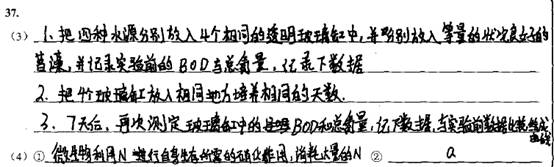 37.
(3) 1. 把四种水源分别放入4个相同的透明玻璃缸中,并分别放入等量的状况良好的
苦草,并记录实验前的BOD与总氮量,记录下数据
2. 把4个玻璃缸放入相同地方培养相同的天数.
3. 7天后,再次测定玻璃缸中的BOD和总氮量,记下数据,与实验前数据
(4) ① 微生物利用N 进行自身生存所需的硝化作用,消耗大量的N ② a